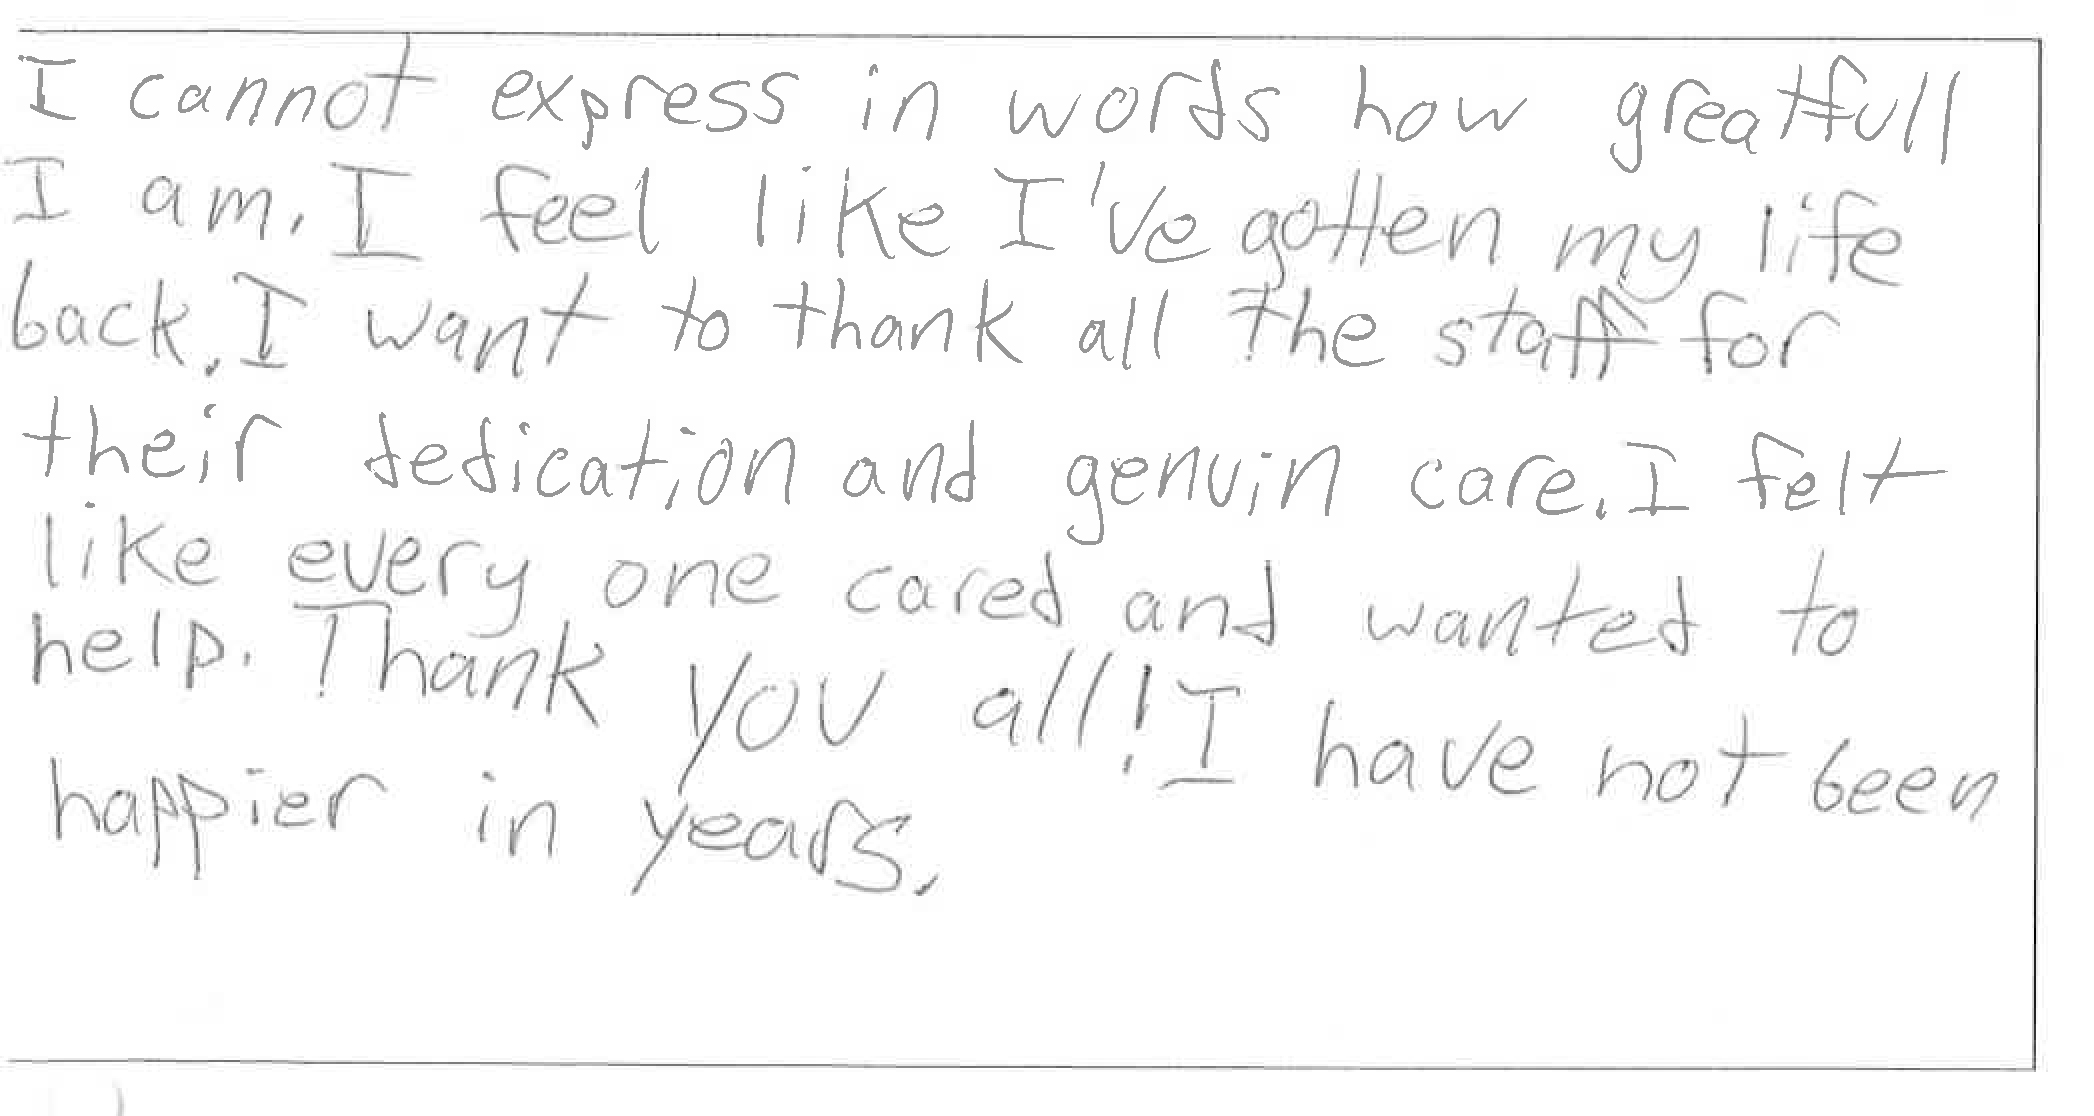 I cannot express in words how greatfull
I am. I feel like I've gotten my life
back. I want to thank all the staff for
their dedication and genuin care. I felt
like every one cared and wanted to
help. Thank you all! I have not been
happier in years.